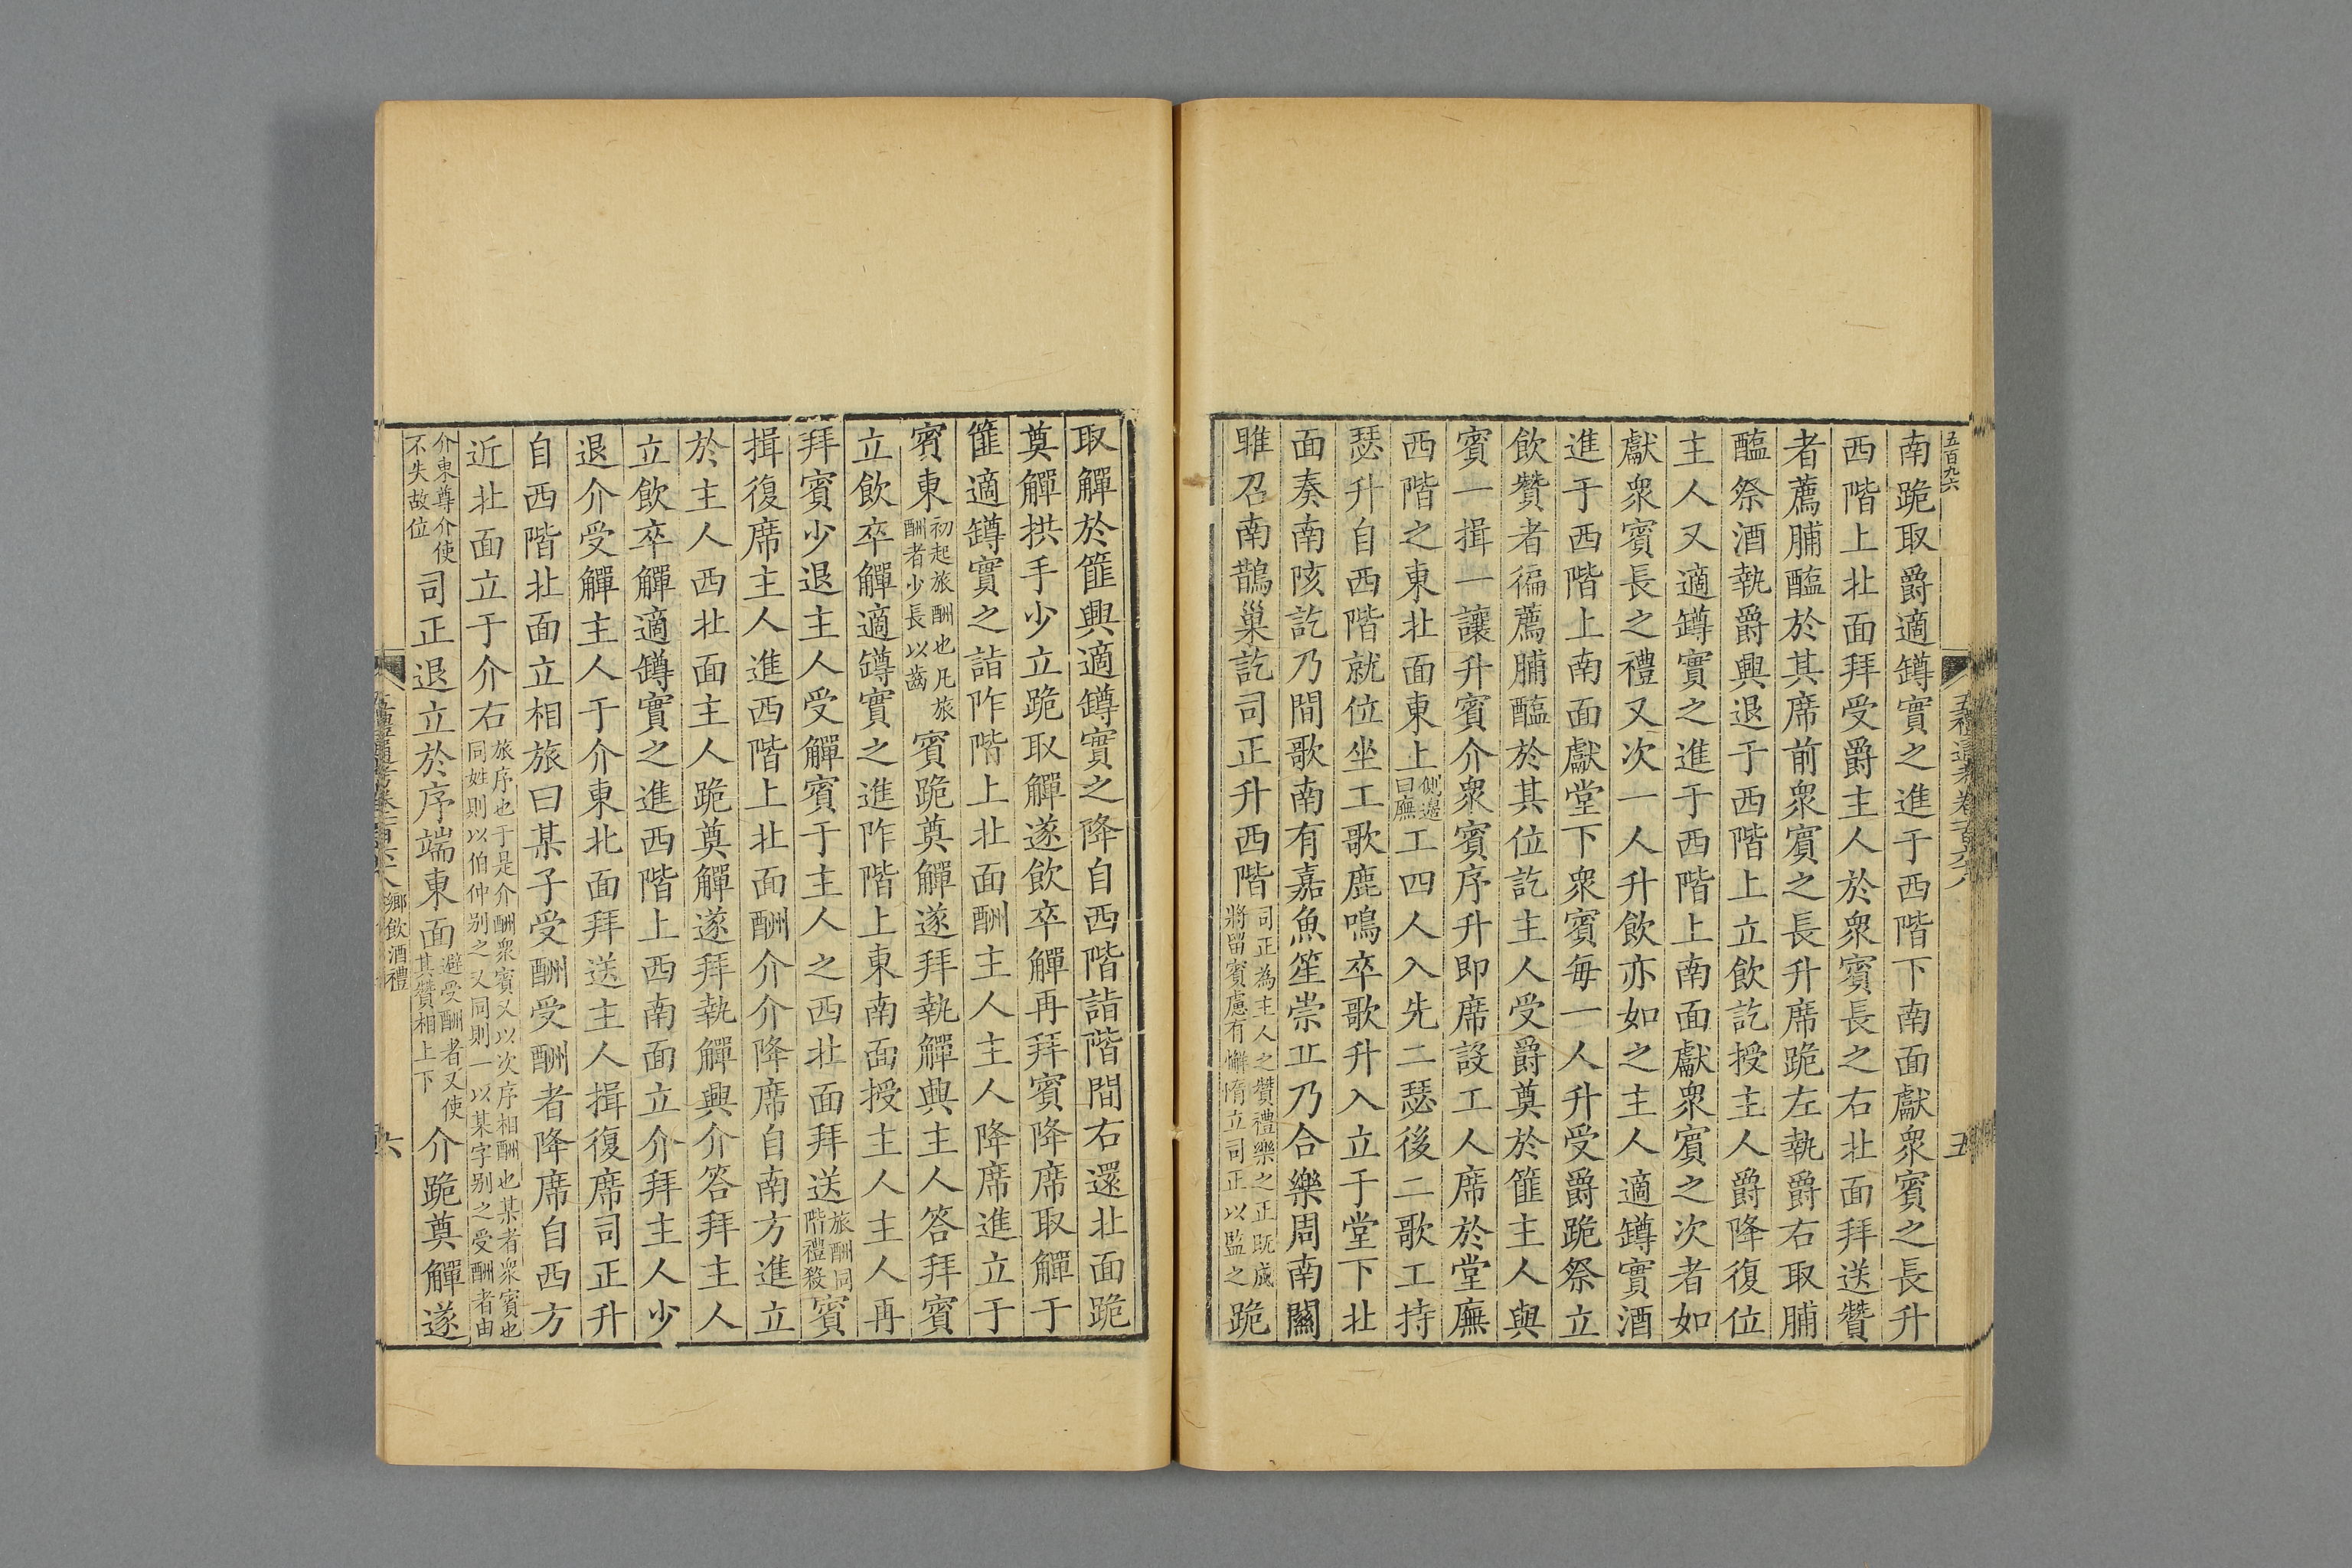 五百九六
五禮通考卷一百六十八
五
南跪取爵適罇實之進于西階下南面獻衆賓之長升
西階上北面拜受爵主人於衆賓長之右北面拜送贊
者薦脯醢於其席前衆賓之長升席跪左執爵右取脯
醢祭酒執爵興退于西階上立飲訖授主人爵降復位
主人又適罇實之進于西階上南面獻衆賓之次者如
獻衆賓長之禮又次一人升飲亦如之主人適罇實酒
進于西階上南面獻堂下衆賓每一人升受爵跪祭立
飲贊者徧薦脯醢於其位訖主人受爵奠於篚主人與
賓一揖一讓升賓介衆賓序升即席設工人席於堂廉
西階之東北面東上側邊曰廉工四人入先二瑟後二歌工持
瑟升自西階就位坐工歌鹿鳴卒歌升入立于堂下北
面奏南陔訖乃間歌南有嘉魚笙崇丘乃合樂周南關
雎召南鵲巢訖司正升西階司正為主人之贊禮樂之正既成將留賓慮有懈惰立司正以監之跪
取觶於篚興適罇實之降自西階詣階間右還北面跪
奠觶拱手少立跪取觶遂飲卒觶再拜賓降席取觶于
篚適罇實之詣阼階上北面酬主人主人降席進立于
賓東初起旅酬也凡旅酬者少長以齒賓跪奠觶遂拜執觶興主人答拜賓
立飲卒觶適罇實之進阼階上東南面授主人主人再
拜賓少退主人受觶賓于主人之西北面拜送旅酬同階禮殺賓
揖復席主人進西階上北面酬介介降席自南方進立
於主人西北面主人跪奠觶遂拜執觶興介答拜主人
立飲卒觶適罇實之進西階上西南面立介拜主人少
退介受觶主人于介東北面拜送主人揖復席司正升
自西階北面立相旅曰某子受酬受酬者降席自西方
近北面立于介右旅序也于是介酬衆賓又以次序相酬也某者衆賓也同姓則以伯仲别之又同則一以某字别之受酬者由
介東尊介使不失故位司正退立於序端東面避受酬者又使其贊相上下介跪奠觶遂
五禮通考卷一百六十八 鄉飲酒禮
六